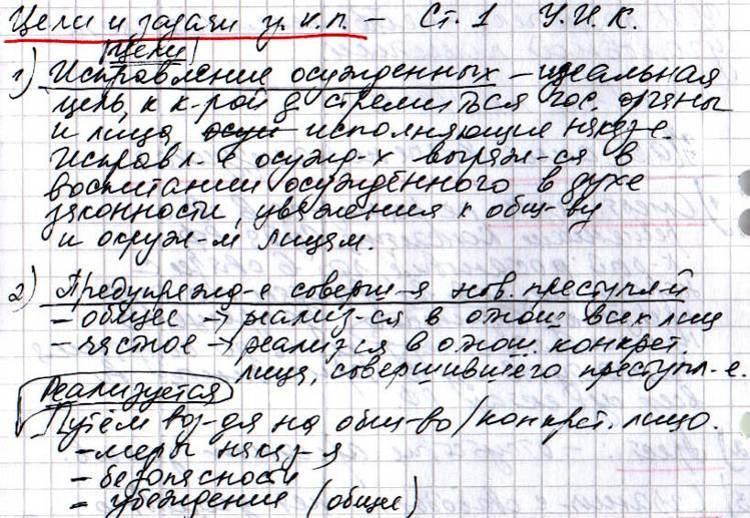 Цели и задачи у.и.п. – Ст. 1 У.И.К.
Цели
1) Исправление осужденных – идеальная
цель, к к-рой д. стремиться гос. органы
и лица, исполняющие наказ-е.
Исправл-е осужд-х выраж-ся в
воспитании осуждённого в духе
законности, уважения к общ-ву
и окруж-м лицам.
2) Предупрежд-е соверш-я нов. преступл-й
– общее → реализ-ся в отнош. всех лиц
– частное → реализ-ся в отнош. конкрет.
лица, совершившего преступл-е.
Реализуется
Путём воз-дя на общ-во/конкрет. лицо.
– меры наказ-я
– безопасности
– убеждения (общие)